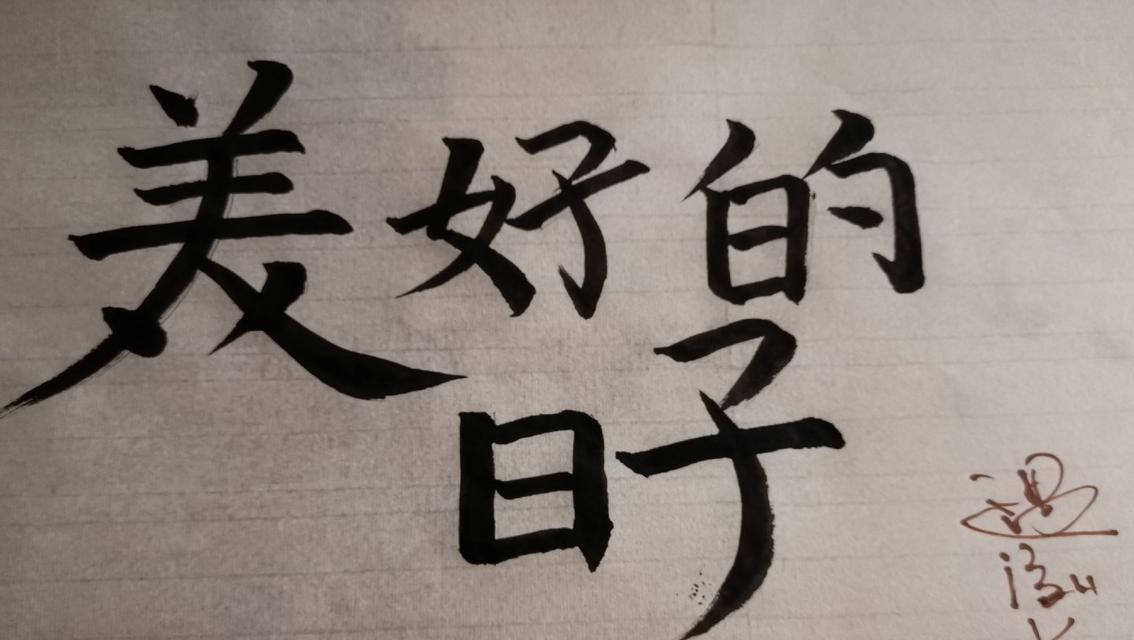 美好的
日子